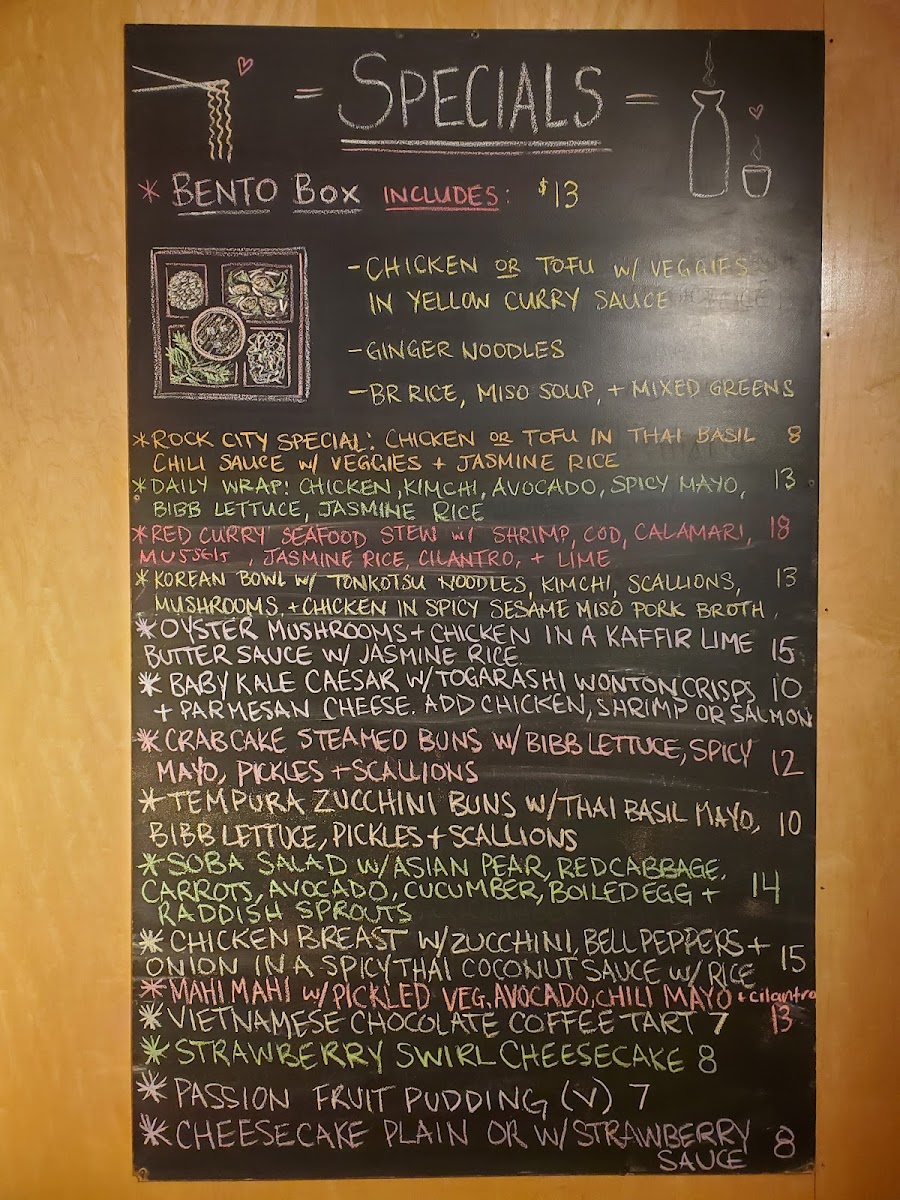 = SPECIALS =
* BENTO BOX INCLUDES: $13
- CHICKEN OR TOFU W/ VEGGIES
IN YELLOW CURRY SAUCE
- GINGER NOODLES
- BR RICE, MISO SOUP, + MIXED GREENS
* ROCK CITY SPECIAL: CHICKEN OR TOFU IN THAI BASIL 8
CHILI SAUCE W/ VEGGIES + JASMINE RICE
* DAILY WRAP: CHICKEN, KIMCHI, AVOCADO, SPICY MAYO, 13
BIBB LETTUCE, JASMINE RICE
* RED CURRY SEAFOOD STEW W/ SHRIMP, COD, CALAMARI, 18
MUSSELS, JASMINE RICE, CILANTRO, + LIME
* KOREAN BOWL W/ TONKOTSU NOODLES, KIMCHI, SCALLIONS, 13
MUSHROOMS. + CHICKEN IN SPICY SESAME MISO PORK BROTH.
* OYSTER MUSHROOMS + CHICKEN IN A KAFFIR LIME
BUTTER SAUCE W/ JASMINE RICE 15
* BABY KALE CAESAR W/ TOGARASHI WONTON CRISPS 10
+ PARMESAN CHEESE. ADD CHICKEN, SHRIMP OR SALMON
* CRABCAKE STEAMED BUNS W/ BIBB LETTUCE, SPICY 12
MAYO, PICKLES + SCALLIONS
* TEMPURA ZUCCHINI BUNS W/ THAI BASIL MAYO, 10
BIBB LETTUCE, PICKLES + SCALLIONS
* SOBA SALAD W/ ASIAN PEAR, RED CABBAGE,
CARROTS, AVOCADO, CUCUMBER, BOILED EGG + 14
RADDISH SPROUTS
* CHICKEN BREAST W/ ZUCCHINI, BELL PEPPERS +
ONION IN A SPICY THAI COCONUT SAUCE W/ RICE 15
* MAHI MAHI W/ PICKLED VEG, AVOCADO, CHILI MAYO + cilantro
13
* VIETNAMESE CHOCOLATE COFFEE TART 7
* STRAWBERRY SWIRL CHEESECAKE 8
* PASSION FRUIT PUDDING (V) 7
* CHEESECAKE PLAIN OR W/ STRAWBERRY 8
SAUCE